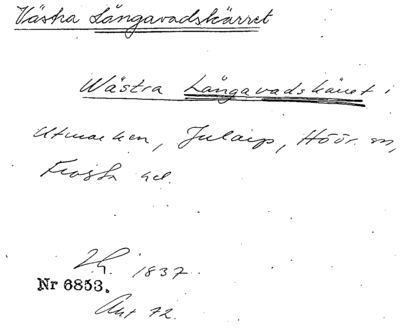 Västra Långavadskärret
Wästra Långavadskärret i
Utmarken, Jularp, Höör sn,
Frosta hd.
1837.
Nr 6853.
Akt 72.